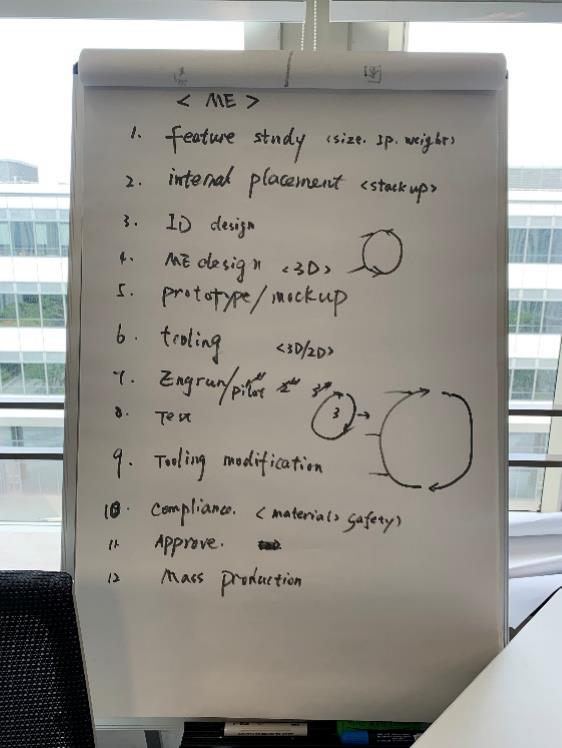 < ME >
1. feature study <size. Ip. weight>
2. internal placement <stack up>
3. ID design
4. ME design <3D>
5. prototype/mockup
6. tooling <3D/2D>
7. Engrun/pilot 2nd 3rd
8. Test 3
9. Tooling modification
10. Compliance. <materials safety>
11 Approve.
12 Mass production